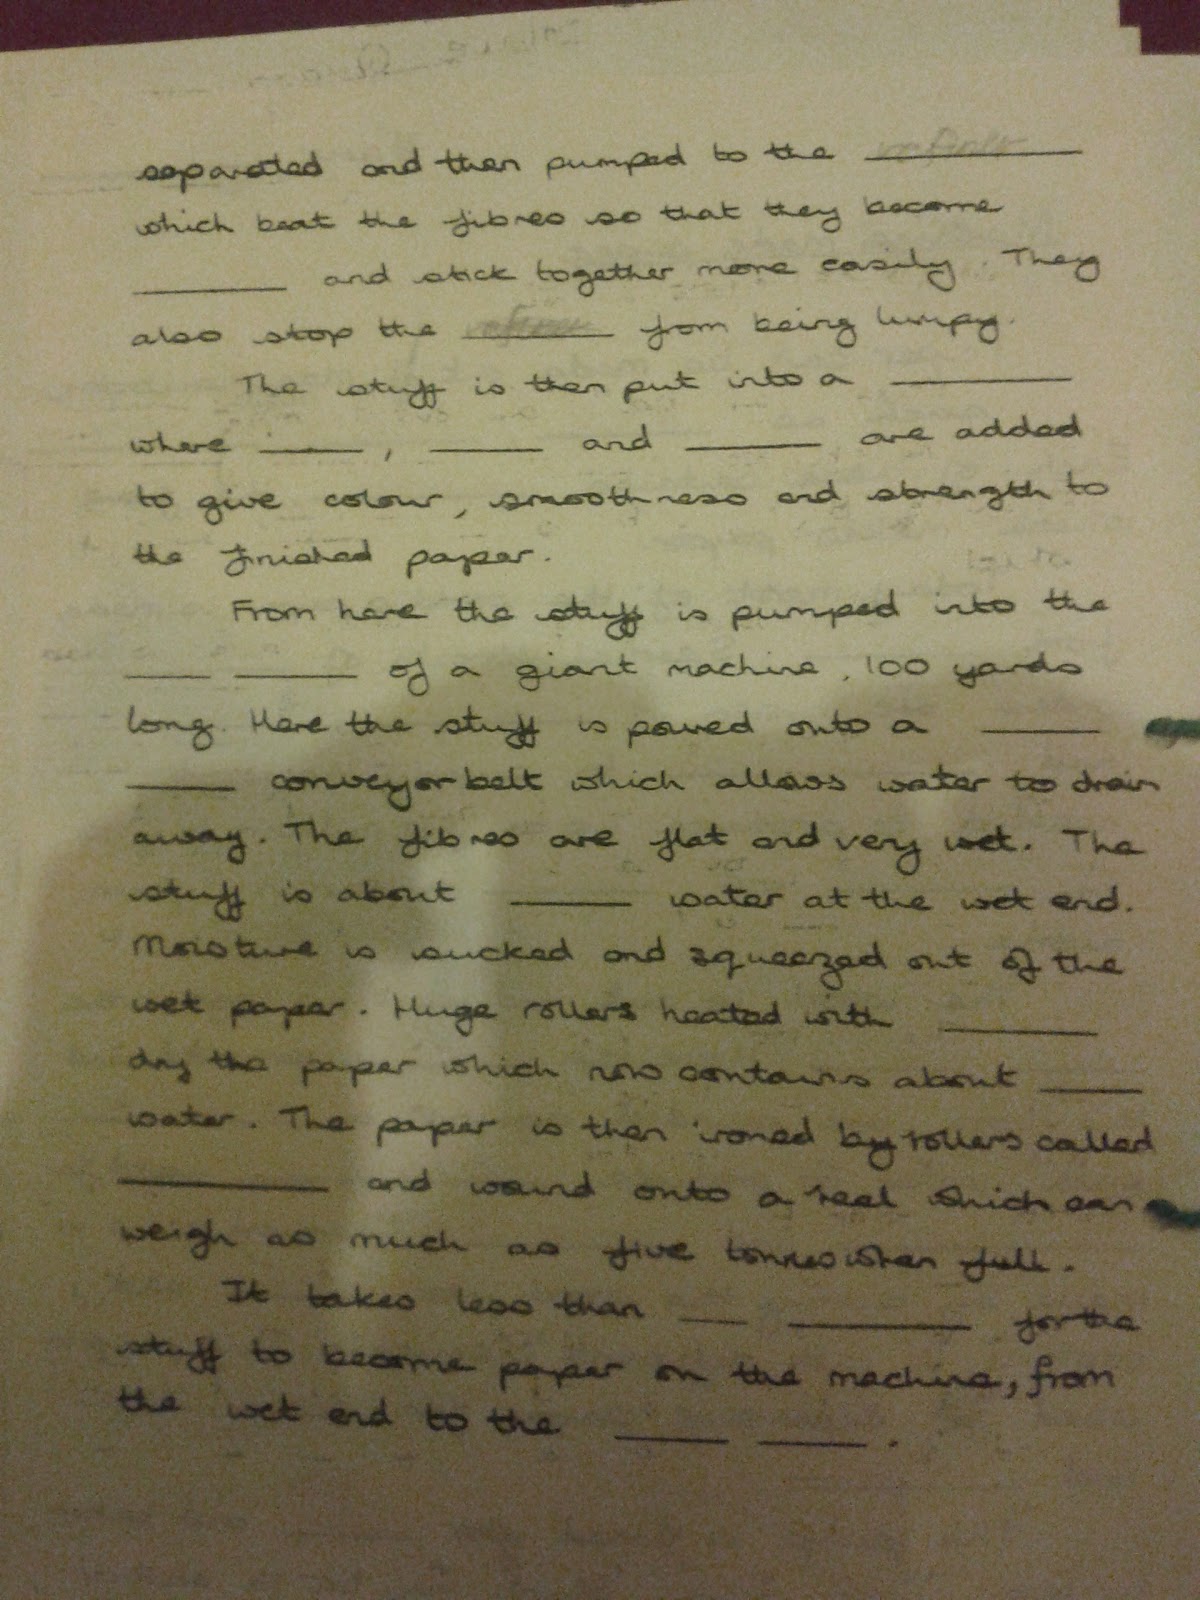 separated and then pumped to the ________
which beat the fibres so that they become
________ and stick together more easily. They
also stop the ________ from being lumpy.
The stuff is then put into a ________
where ____, ____ and ____ are added
to give colour, smoothness and strength to
the finished paper.
From here the stuff is pumped into the
____ ____ of a giant machine, 100 yards
long. Here the stuff is poured onto a ____
____ conveyor belt which allows water to drain
away. The fibres are flat and very wet. The
stuff is about ____ water at the wet end.
Moisture is sucked and squeezed out of the
wet paper. Huge rollers heated with ________
dry the paper which now contains about ____
water. The paper is then ironed by rollers called
________ and wound onto a reel which can
weigh as much as five tonnes when full.
It takes less than ___ ________ for the
stuff to become paper on the machine, from
the wet end to the ____ ____.